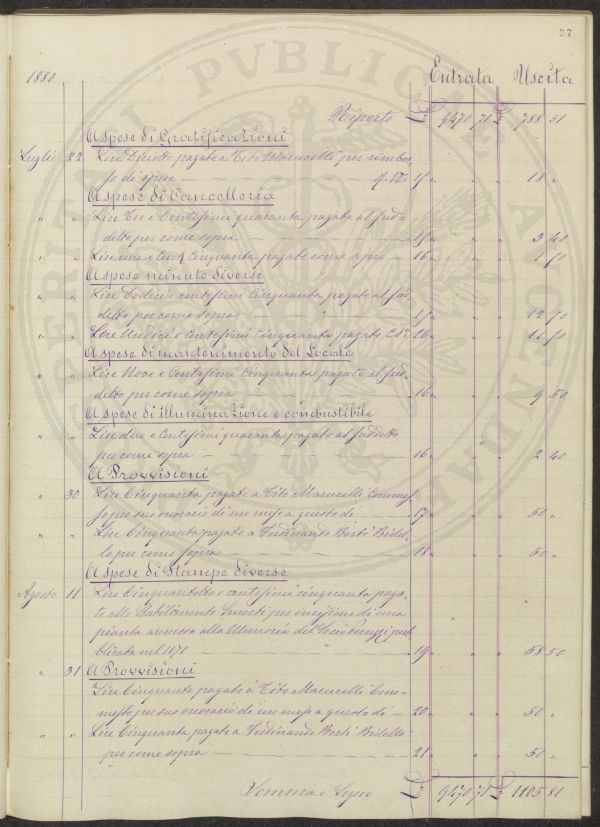 27
1880 Entrata Uscita
Riporto £ 9470 71 £ 788 51
A spese di Gratificazioni
Luglio 22 Lire Diciotto pagate a Tito Marucelli per rimbor-
so di spese — 15 " " " 18 "
A spese di Cancelleria
" " Lire Tre e Centesimi quaranta pagate al sud-
detto per come sopra — 15 " " " 3 40
" " Lire una e Cent. Cinquanta pagate come sopra — 16 " " " 1 50
A spese minute diverse
" " Lire Dodici e centesimi Cinquanta pagate al sud-
detto per come sopra — 15 " " " 12 50
" " Lire Undici e Centesimi Cinquanta pagate 16 " " " 11 50
A spese di mantenimento del Locale
" " Lire Nove e Centesimi Cinquanta pagate al sud-
detto per come sopra — 16 " " " 9 50
A spese di illuminazione e combustibile
" " Lire due e Centesimi quaranta pagate al suddetto
per come sopra — 16 " " " 2 40
A Provvisioni
" 30 Lire Cinquanta pagate a Tito Marucelli Commes-
so per suo onorario di un mese a questo dì — 17 " " " 50 "
" " Lire Cinquanta pagate a Ferdinando Berti Bidel-
lo per come sopra — 18 " " " 50 "
A spese di Stampe diverse
Agosto 11 Lire Cinquantotto e centesimi cinquanta paga-
te allo Stabilimento per incisione di una
pianta annessa alla Memoria del Socio Peruzzi pub-
blicata nel 1878 — 19 " " " 58 50
" 31 A Provvisioni
Lire Cinquanta pagate a Tito Marucelli Com-
messo per suo onorario di un mese a questo dì — 20 " " " 50 "
" " Lire Cinquanta pagate a Ferdinando Berti Bidello
per come sopra — 21 " " " 50 "
Somma e Segue £ 9470 71 £ 1105 81